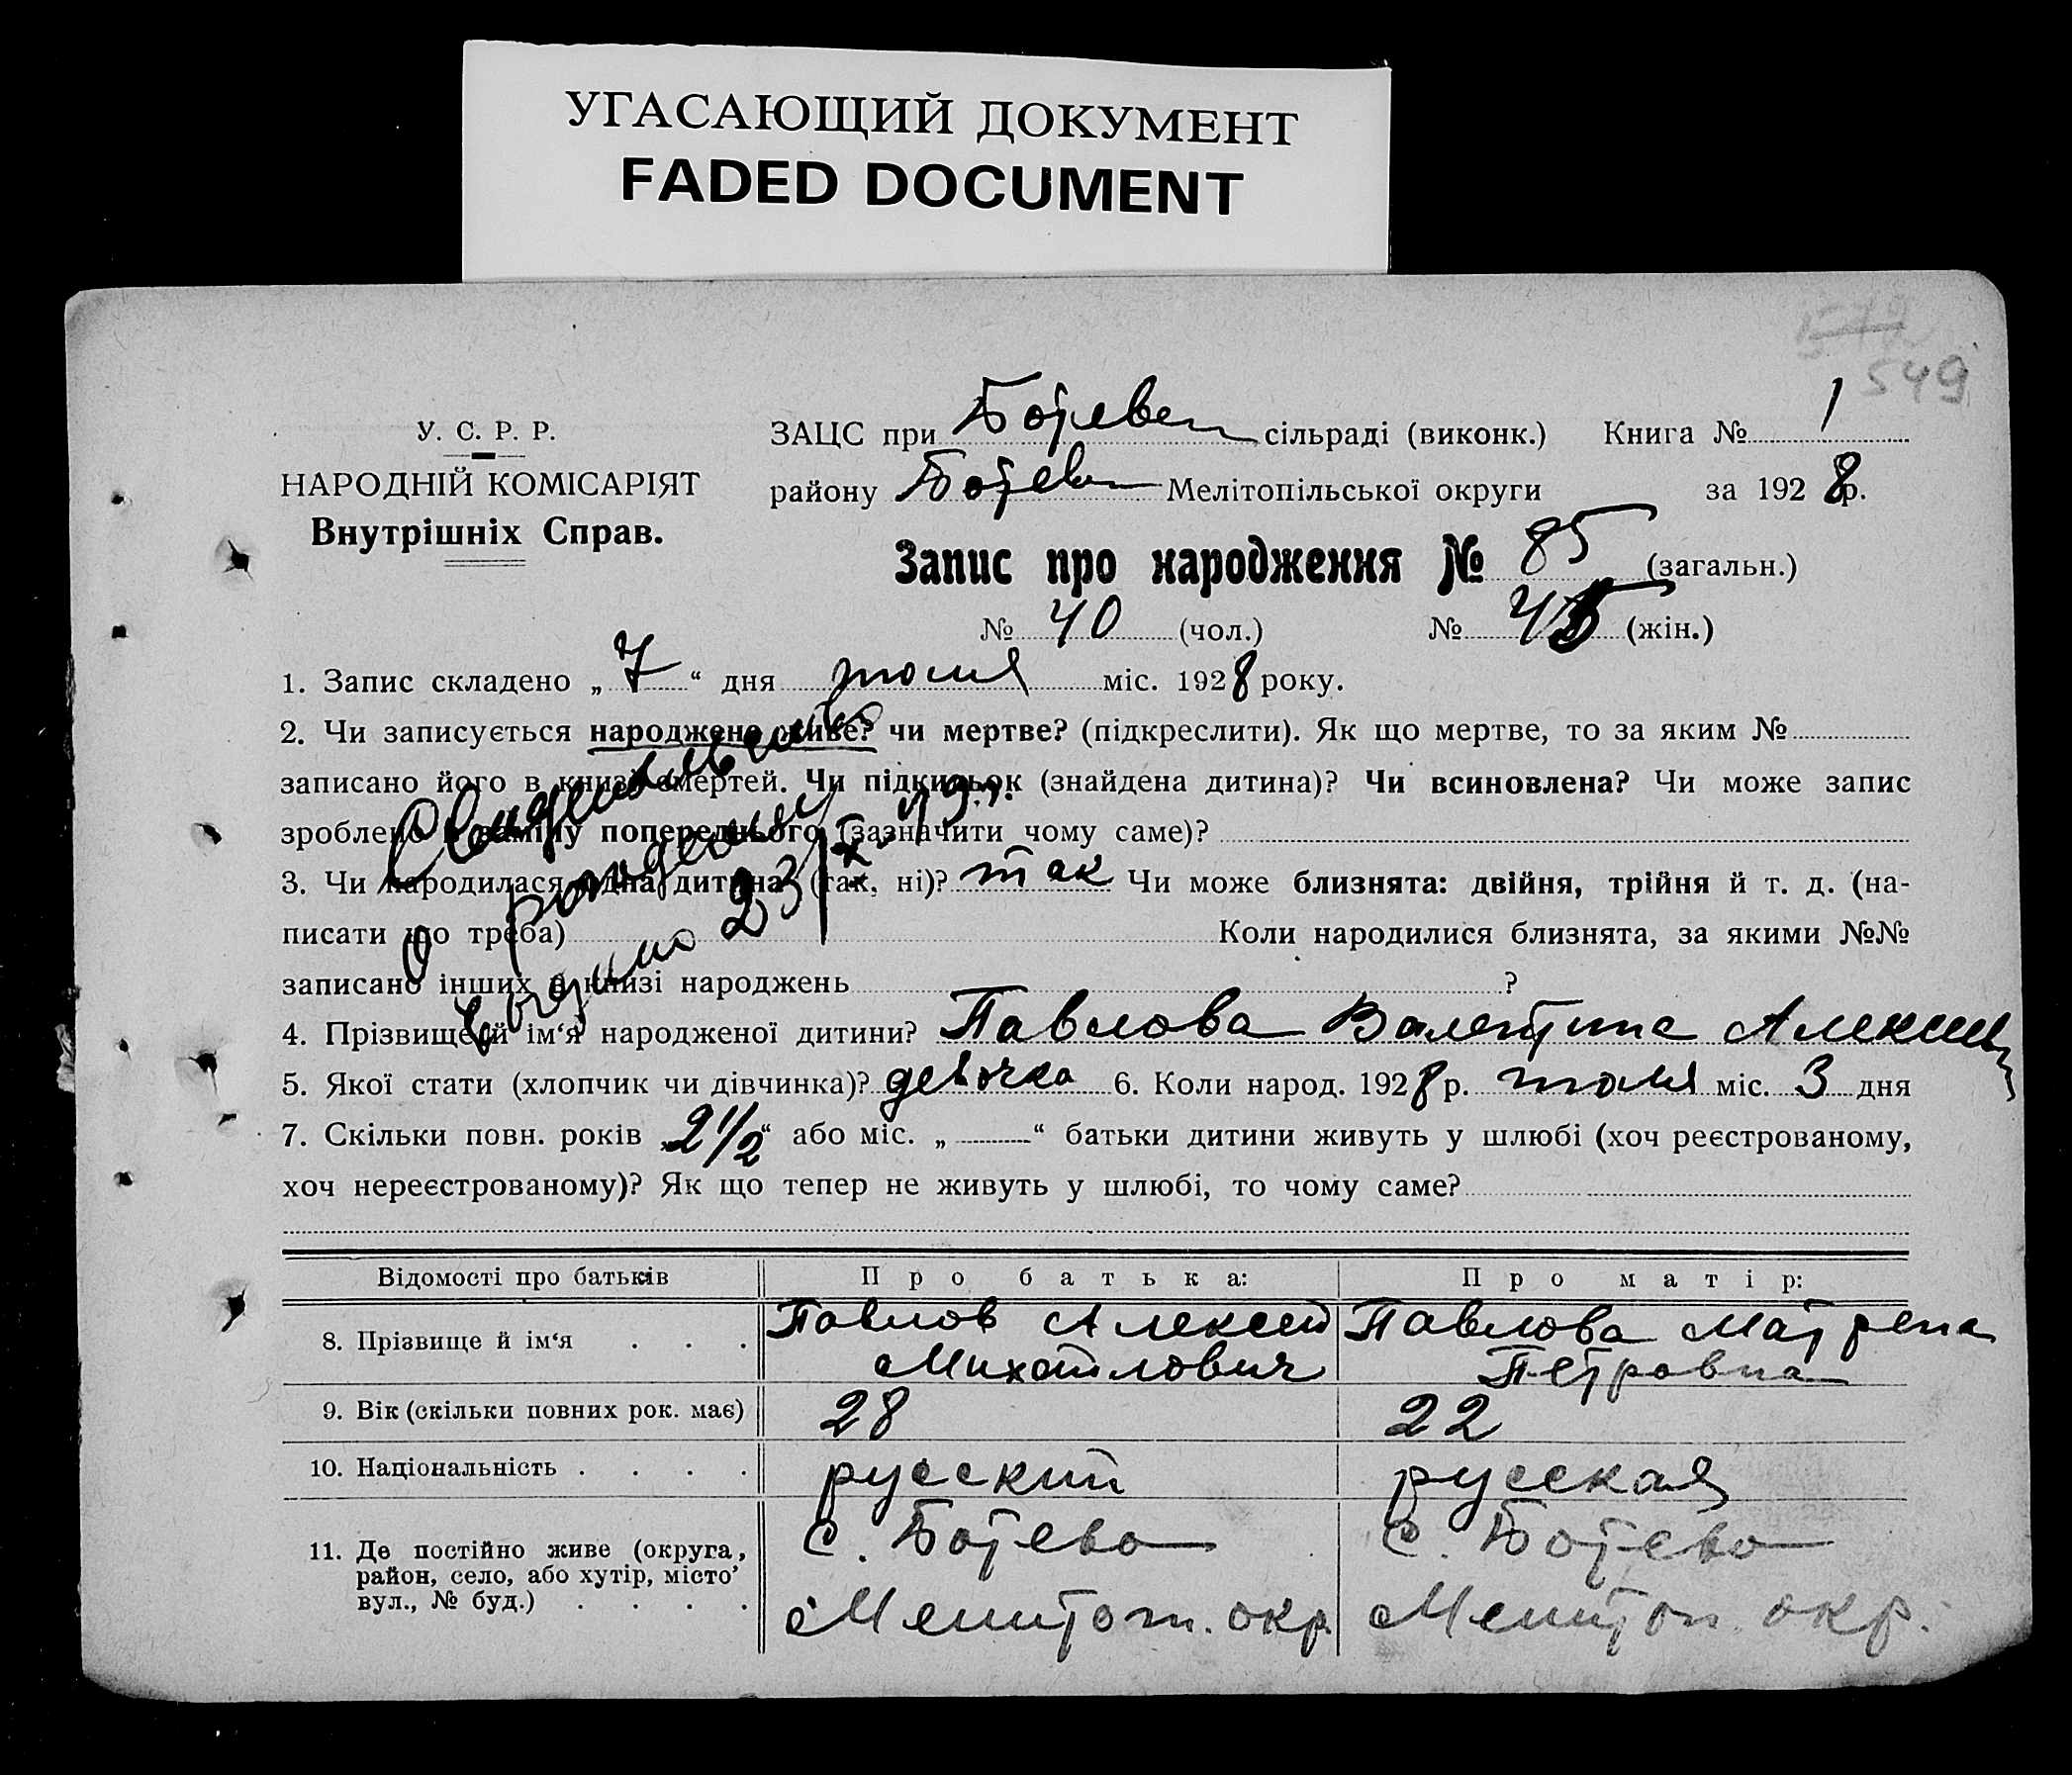 УГАСАЮЩИЙ ДОКУМЕНТ
FADED DOCUMENT
549
У. С. Р. Р.
НАРОДНІЙ КОМІСАРІЯТ
Внутрішніх Справ.
ЗАЦС при Ботевск сільраді (виконк.) Книга № 1
району Ботев Мелітопільської округи за 1928 р.
Запис про народження № 85 (загальн.)
№ 40 (чол.) № 45 (жін.)
1. Запис складено „7“ дня июля міс. 1928 року.
2. Чи записується народжене живе? чи мертве? (підкреслити). Як що мертве, то за яким №
записано його в книзі смертей. Чи підкидьок (знайдена дитина)? Чи всиновлена? Чи може запис
зроблено в заміну попереднього (зазначити чому саме)?
3. Чи народилася одна дитина (так, ні)? так Чи може близнята: двійня, трійня й т. д. (на-
писати що треба) Коли народилися близнята, за якими №№
записано інших в книзі народжень ?
Свидетельство
о рождении
выдано 23/X
4. Прізвище й ім‘я народженої дитини? Павлова Валентина Алексеев
5. Якої стати (хлопчик чи дівчинка)? девочка 6. Коли народ. 1928 р. июля міс. 3 дня
7. Скільки повн. років „2 1/2“ або міс. „ “ батьки дитини живуть у шлюбі (хоч реєстрованому,
хоч нереєстрованому)? Як що тепер не живуть у шлюбі, то чому саме?
Відомості про батьків Про батька: Про матір:
8. Прізвище й ім‘я . . . Павлов Алексей Михайлович Павлова Матрена Петровна
9. Вік (скільки повних рок. має) 28 22
10. Національність . . . . русский русская
11. Де постійно живе (округа, район, село, або хутір, місто, вул., № буд.) . . . . с. Ботево Мелитоп. окр. с. Ботево Мелитоп. окр.